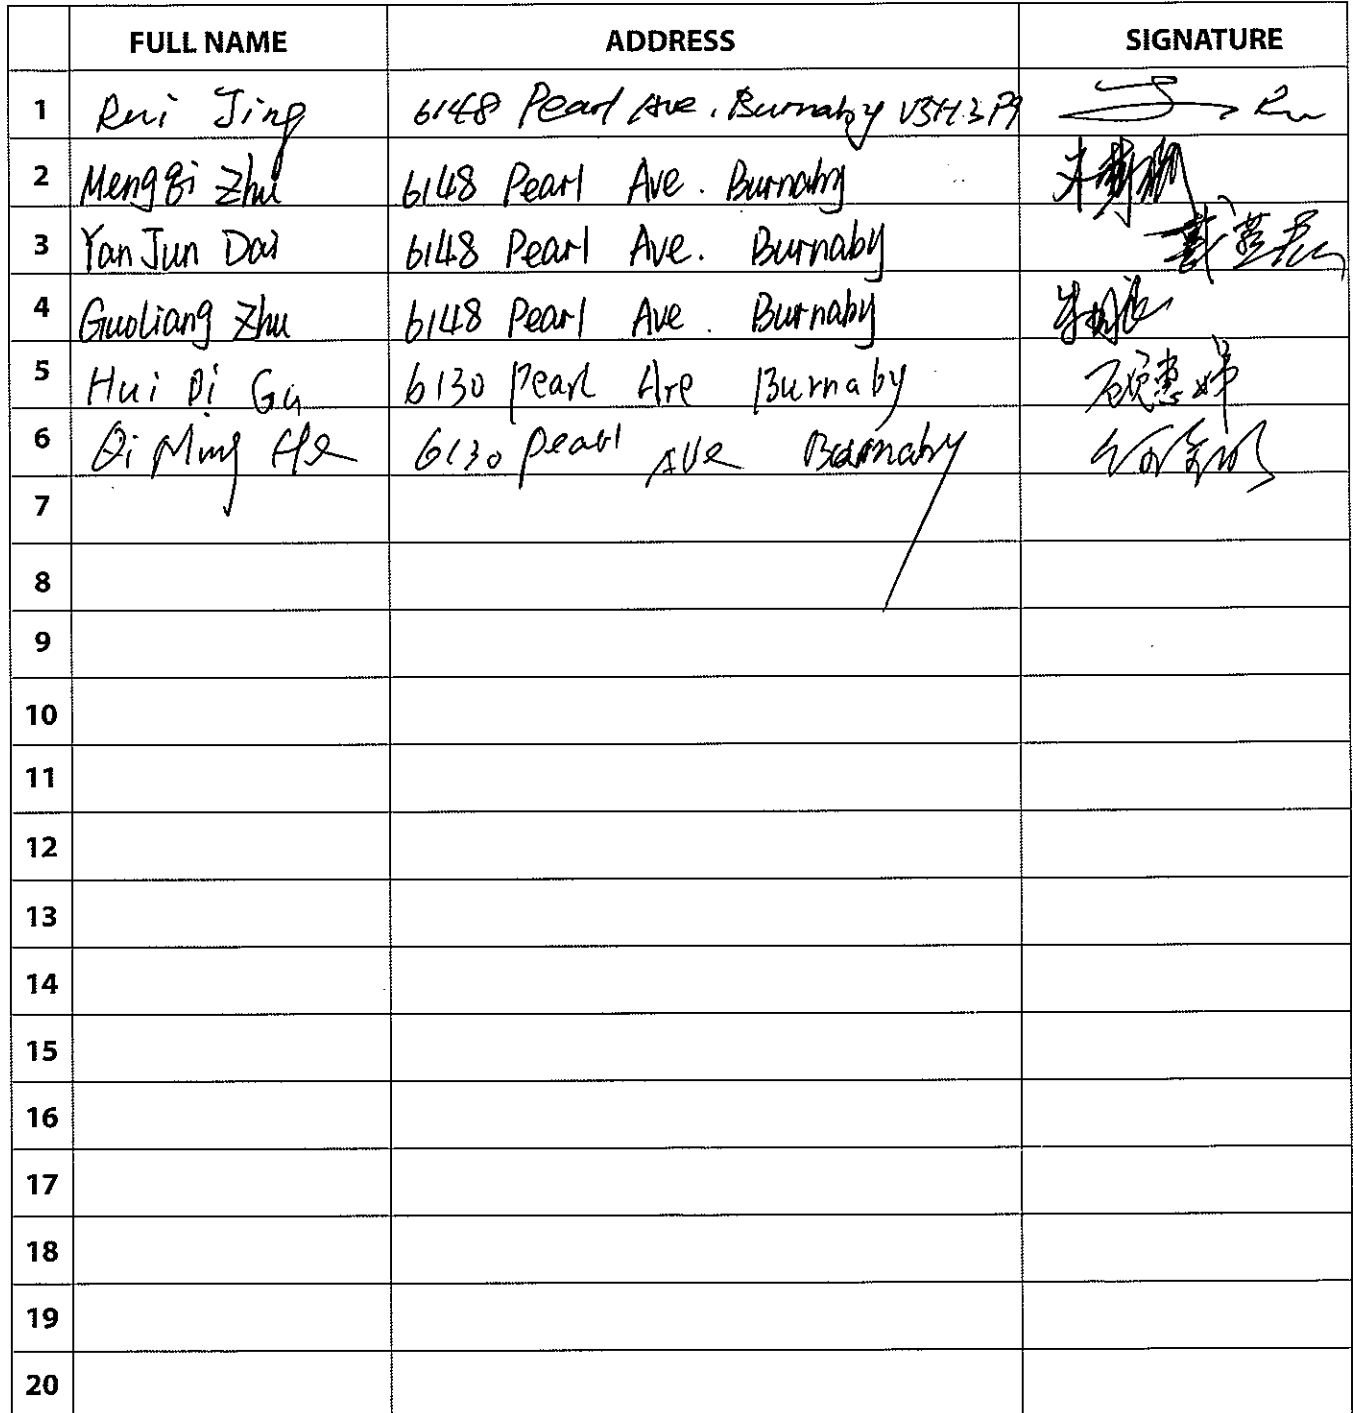 FULL NAME ADDRESS SIGNATURE
1 Rui Jing 6148 Pearl Ave. Burnaby V5H 3P9
2 Mengqi Zhu 6148 Pearl Ave. Burnaby
3 Yan Jun Dai 6148 Pearl Ave. Burnaby 戴燕君
4 Guoliang Zhu 6148 Pearl Ave. Burnaby
5 Hui Di Gu 6130 Pearl Ave Burnaby 顾惠娣
6 Qi Ming He 6130 Pearl AVe Burnaby
7
8
9
10
11
12
13
14
15
16
17
18
19
20